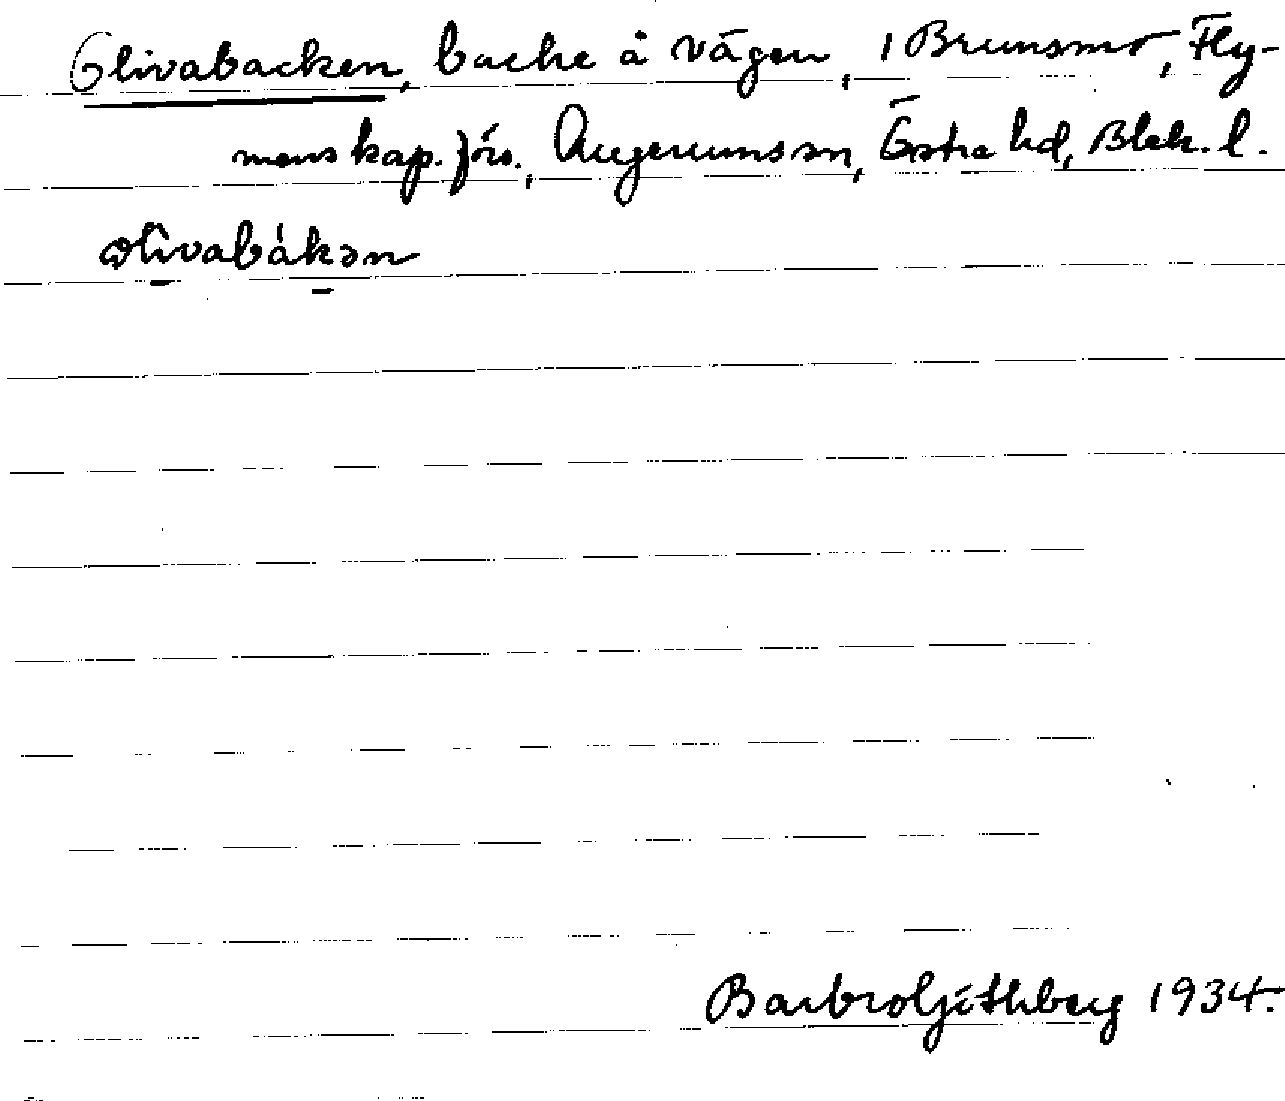 Olivabacken, backe å vägen, i Brunsmo, Fly-
mens kap. förs., Augerums sn, Östra hd, Blek. l.
olivabákən
Barbro Ljithberg 1934.